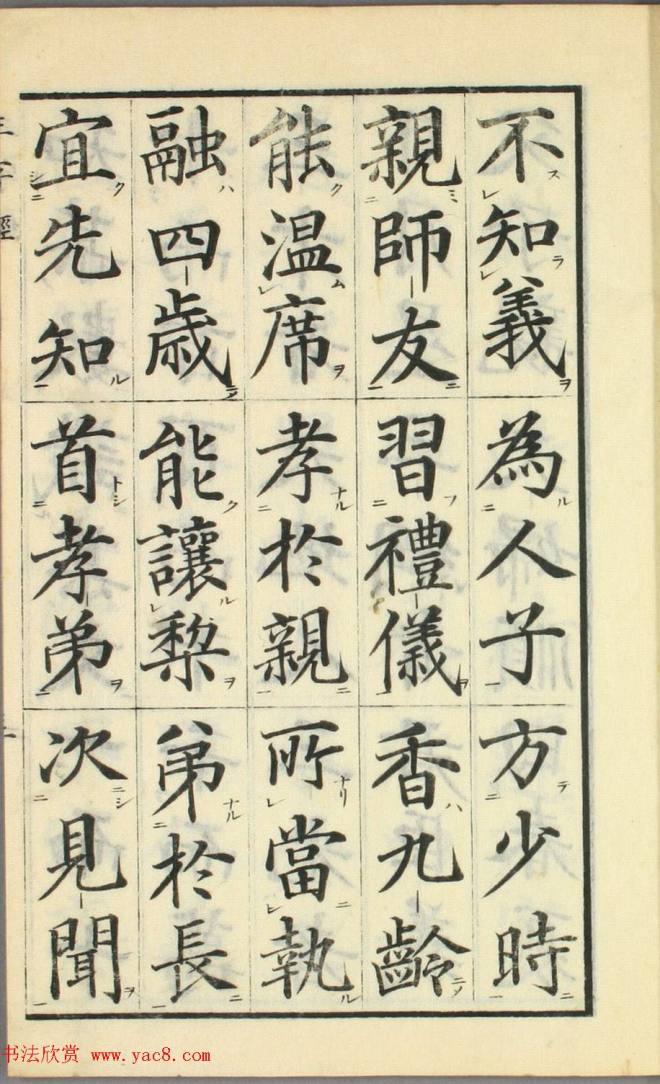 不知義為人子方少時
親師友習禮儀香九齡
能温席孝於親所當執
融四歳能讓梨弟於長
宜先知首孝弟次見聞
三字經
书法欣赏 www.yac8.com